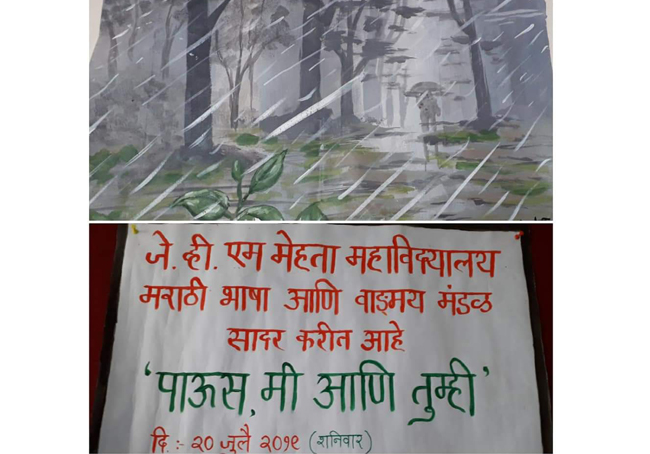 जे. व्ही. एम मेहता महाविद्यालय
मराठी भाषा आणि वाङमय मंडळ
सादर करीत आहे
'पाऊस, मी आणि तुम्ही'
दि :- २० जुलै २०१९ (शनिवार)